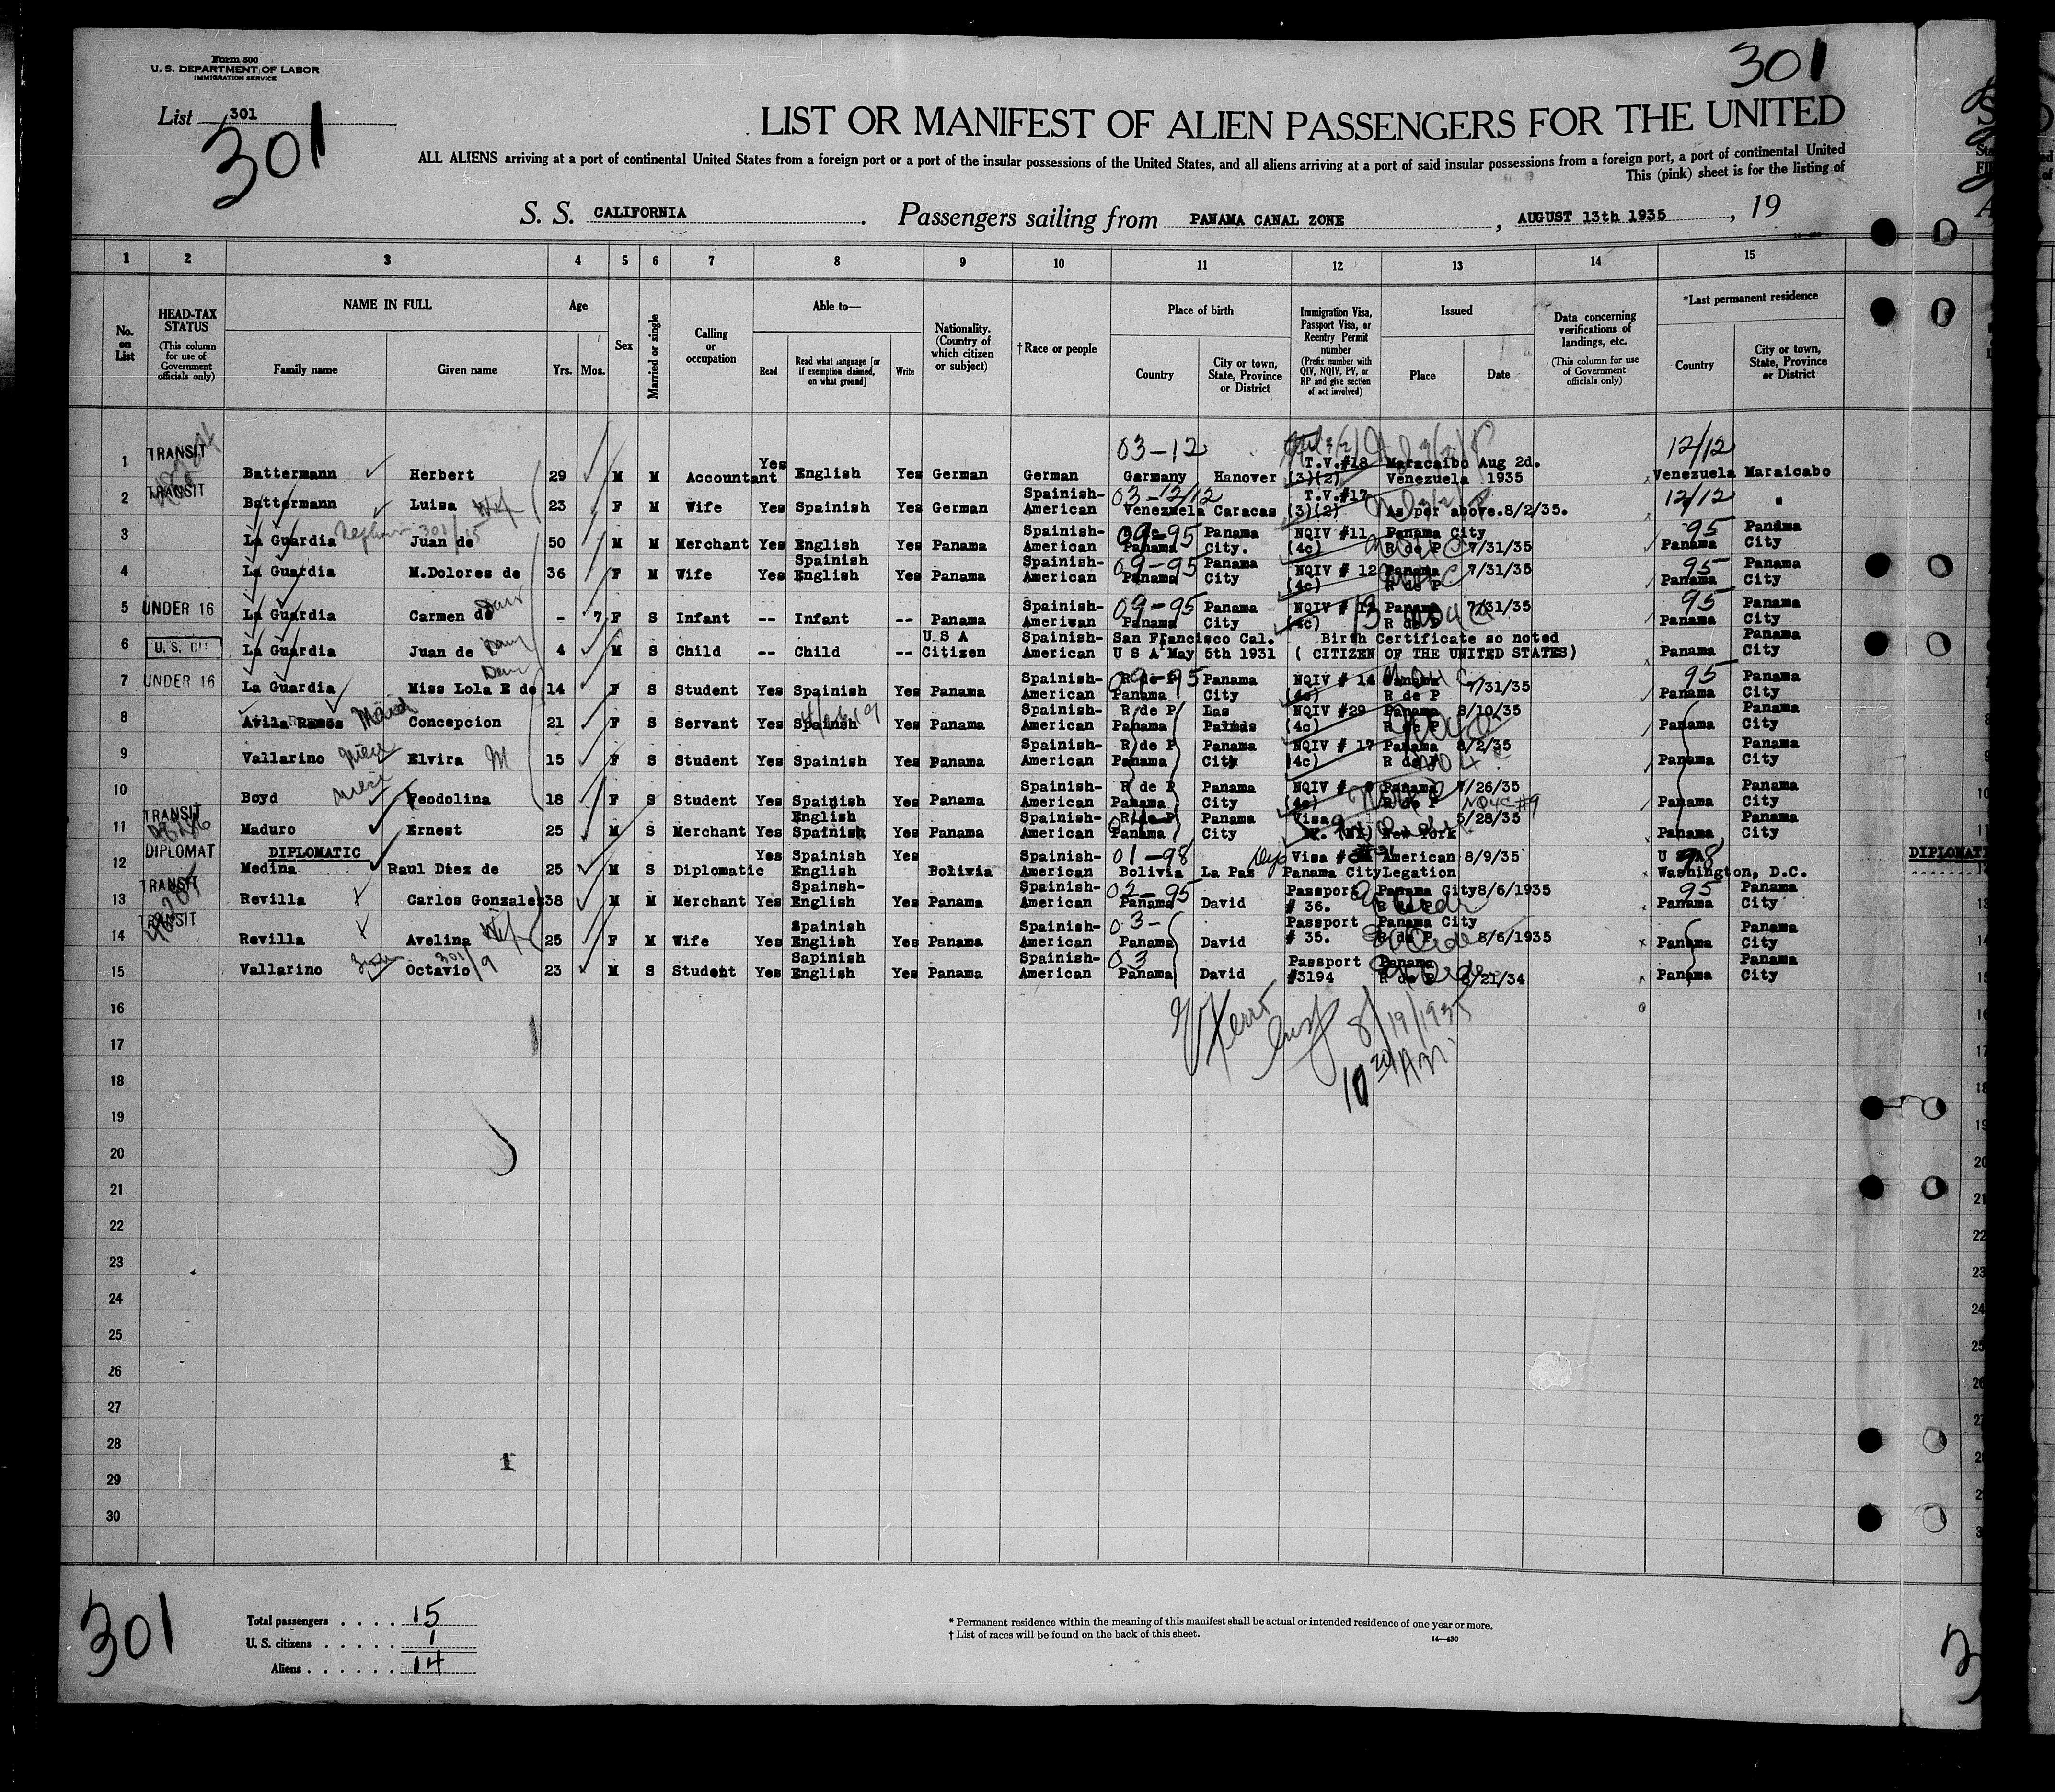 Form 500
U. S. DEPARTMENT OF LABOR
IMMIGRATION SERVICE
301
List 301
301
LIST OR MANIFEST OF ALIEN PASSENGERS FOR THE UNITED
ALL ALIENS arriving at a port of continental United States from a foreign port or a port of the insular possessions of the United States, and all aliens arriving at a port of said insular possessions from a foreign port, a port of continental United
This (pink) sheet is for the listing of
S. S. CALIFORNIA. Passengers sailing from PANAMA CANAL ZONE, AUGUST 13th 1935, 19
1 2 3 4 5 6 7 8 9 10 11 12 13 14 15
No. on List
HEAD-TAX STATUS (This column for use of Government officials only)
NAME IN FULL Family name Given name
Age Yrs. Mos.
Sex
Married or single
Calling or occupation
Able to— Read Read what language [or if exemption claimed, on what ground] Write
Nationality. (Country of which citizen or subject)
†Race or people
Place of birth Country City or town, State, Province or District
Immigration Visa, Passport Visa, or Reentry Permit number (Prefix number with QIV, NQIV, PV, or RP and give section of act involved)
Issued Place Date
Data concerning verifications of landings, etc. (This column for use of Government officials only)
*Last permanent residence Country City or town, State, Province or District
1 TRANSIT Battermann Herbert 29 M M Accountant Yes English Yes German German 03-12 Germany Hanover T.V.#18 (3)(2) Maracaibo Venezuela Aug 2d. 1935 12/12 Venezuela Maraicabo
2 TRANSIT Battermann Luisa Wife 23 F M Wife Yes Spanish Yes German Spainish-American 03-12/12 Venezuela Caracas T.V.#17 (3)(2) As per above.8/2/35. 12/12 "
3 La Guardia Juan de 301/15 50 M M Merchant Yes English Spainish Yes Panama Spainish-American 09-95 Panama Panama City. NQIV #11 (4c) Panama City R de P 7/31/35 95 Panama Panama City
4 La Guardia M.Dolores de 36 F M Wife Yes English Yes Panama Spainish-American 09-95 Panama Panama City NQIV # 12 (4c) Panama R de P 7/31/35 95 Panama Panama City
5 UNDER 16 La Guardia Carmen de - 7 F S Infant -- Infant -- Panama Spainish-American 09-95 Panama Panama City NQIV # 13 (4c) Panama R de P 7/31/35 95 Panama Panama City
6 U. S. CIT La Guardia Juan de 4 M S Child -- Child -- U S A Citizen Spainish-American San Francisco Cal. U S A May 5th 1931 Birth Certificate so noted ( CITIZEN OF THE UNITED STATES) Panama Panama City
7 UNDER 16 La Guardia Miss Lola E de 14 F S Student Yes Spainish Yes Panama Spainish-American 09-95 R de P Panama Panama City NQIV # 14 (4c) Panama R de P 7/31/35 95 Panama Panama City
8 Avila Ramos Maid Concepcion 21 F S Servant Yes Spainish Yes Panama Spainish-American R de P Panama Las Palmas NQIV #29 (4c) Panama R de P 8/10/35 Panama Panama City
9 Vallarino niece Elvira M 15 F S Student Yes Spainish Yes Panama Spainish-American R de P Panama Panama City NQIV # 17 (4c) Panama R de P 8/2/35 Panama Panama City
10 Boyd niece Feodolina 18 F S Student Yes Spainish Yes Panama Spainish-American R de P Panama Panama City NQIV # 9 (4c) Panama R de P 7/26/35 NQ4C#9 Panama Panama City
11 TRANSIT Maduro Ernest 25 M S Merchant Yes English Spainish Yes Panama Spainish-American R de P Panama Panama City Visa New York 5/28/35 Panama Panama City
12 DIPLOMAT DIPLOMATIC Medina Raul Diez de 25 M S Diplomatic Yes Spainish English Yes Bolivia Spainish-American 01-98 Bolivia La Paz Dip Visa # Panama City American Legation 8/9/35 U S A 98 Washington, D.C.
DIPLOMATI
13 TRANSIT Revilla Carlos Gonzalez 38 M M Merchant Yes Spainsh-English Yes Panama Spainish-American 02-95 Panama David Passport # 36. Panama City R de P 8/6/1935 95 Panama Panama City
14 TRANSIT Revilla Avelina Wife 25 F M Wife Yes Spainish English Yes Panama Spainish-American 03- Panama David Passport # 35. Panama City R de P 8/6/1935 Panama Panama City
15 Vallarino Octavio 301/9 23 M S Student Yes Sapinish English Yes Panama Spainish-American 03 Panama David Passport #3194 Panama R de P 8/21/34 Panama Panama City
16
17
18
19
20
21
22
23
24
25
26
27
28
29
30
8/19/1935
10 20 AM
1
301
Total passengers . . . . 15
U. S. citizens . . . . . 1
Aliens . . . . . . 14
* Permanent residence within the meaning of this manifest shall be actual or intended residence of one year or more.
† List of races will be found on the back of this sheet.
14—430